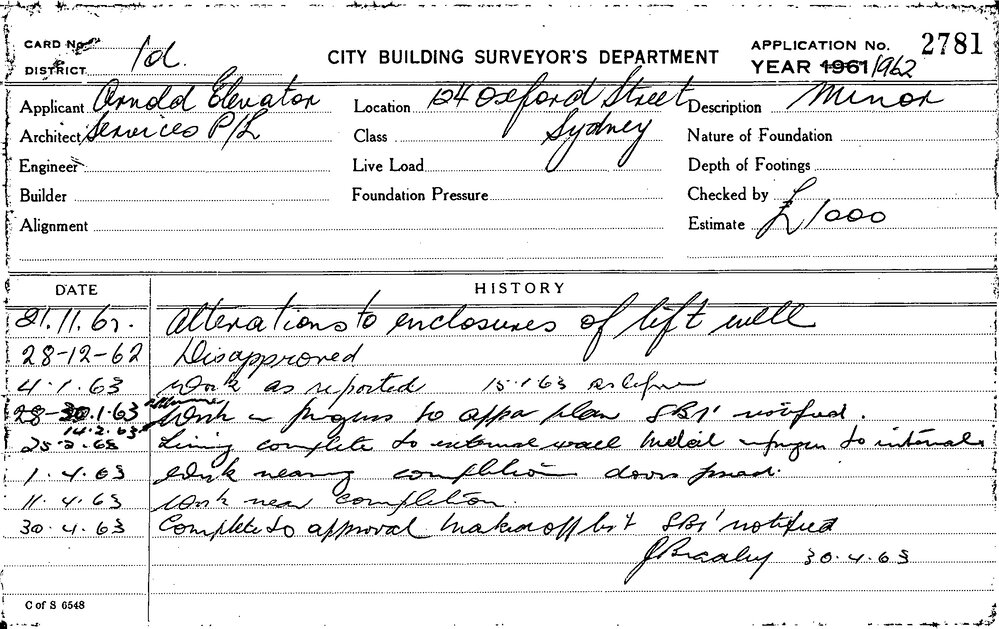 CARD No.
DISTRICT 1d.
CITY BUILDING SURVEYOR'S DEPARTMENT
APPLICATION No. 2781
YEAR 1961/1962
Applicant Arnold Elevator
Architect Services P/L
Engineer
Builder
Alignment
Location 124 Oxford Street
Class Sydney
Live Load
Foundation Pressure
Description Minor
Nature of Foundation
Depth of Footings
Checked by
Estimate £1000
DATE HISTORY
21.11.62. Alterations to enclosures of lift well
28-12-62 Disapproved
4.1.63 Work as reported 15.1.63 as before
28-30.1.63 Work in progress to appd plan SBI notified.
14.2.63
25.2.63 Lining complete to external wall in progress to internal
1.4.63 Work nearing completion doors
11.4.63 Work near completion.
30.4.63 Complete to approval SBI notified
30.4.63
C of S 6548